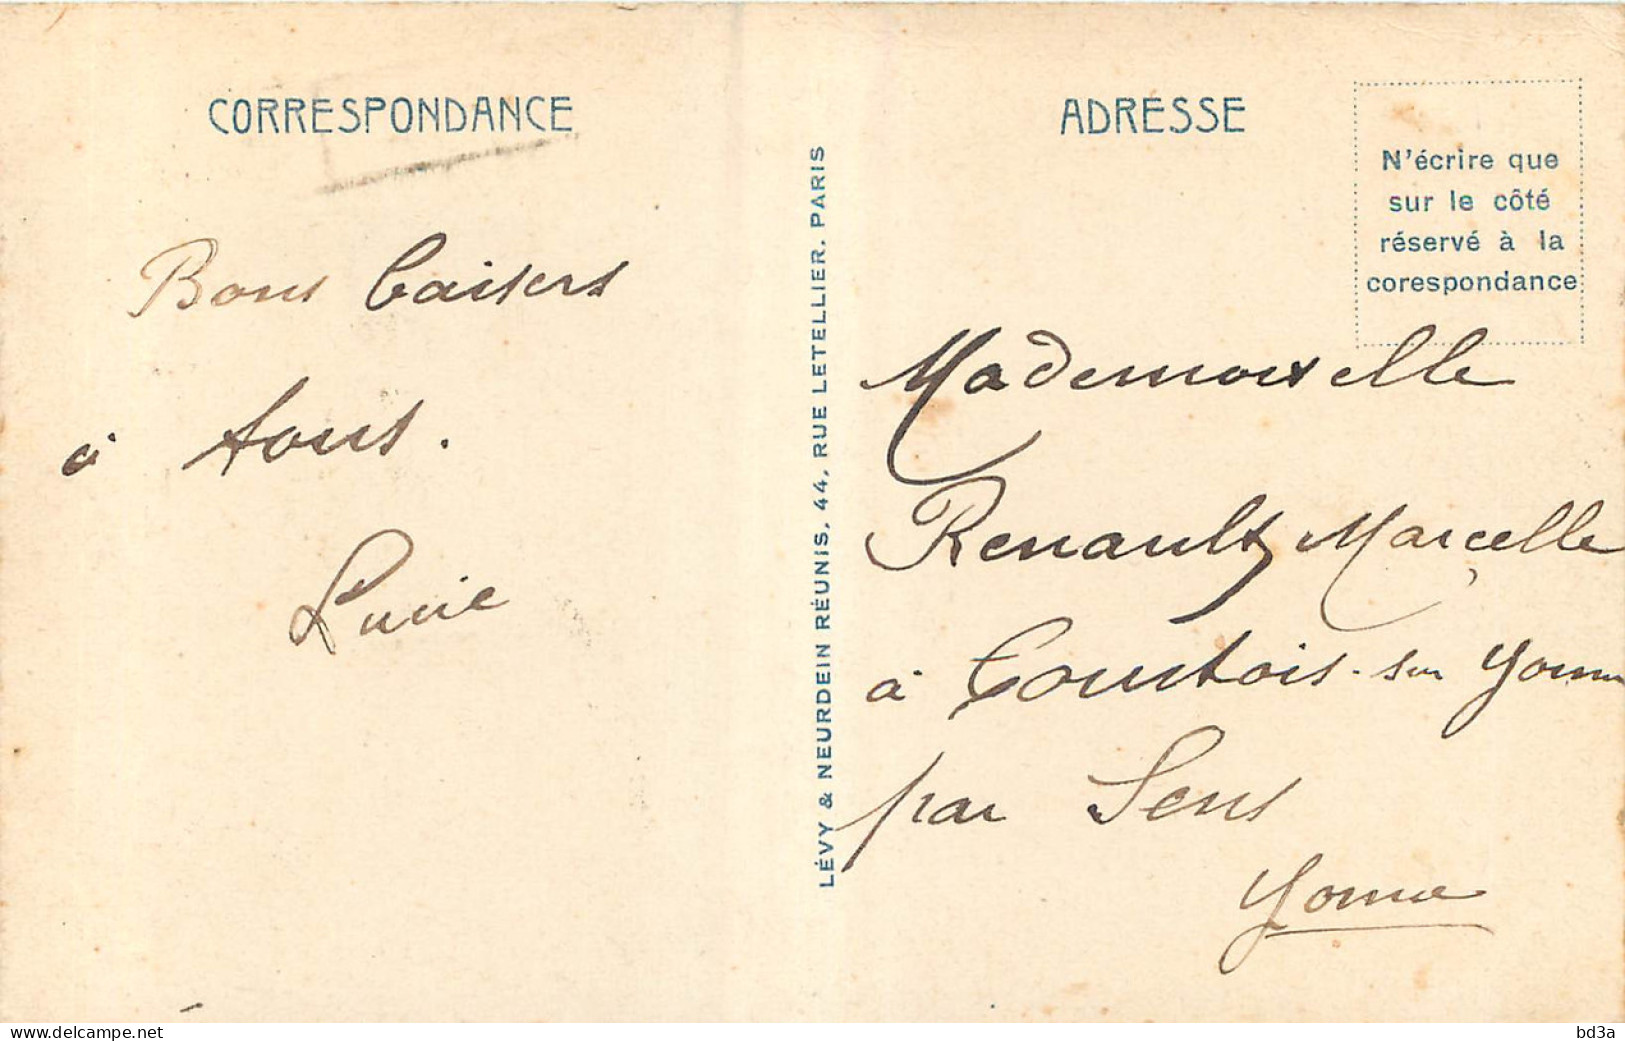 CORRESPONDANCE
Bons baisers
à tous.
Lucie
LÉVY & NEURDEIN RÉUNIS, 44, RUE LETELLIER, PARIS
ADRESSE
N'écrire que
sur le côté
réservé à la
corespondance
Mademoiselle
Renault Marcelle
à Courtois-sur Yonne
par Sens
Yonne
www.delcampe.net
bd3a